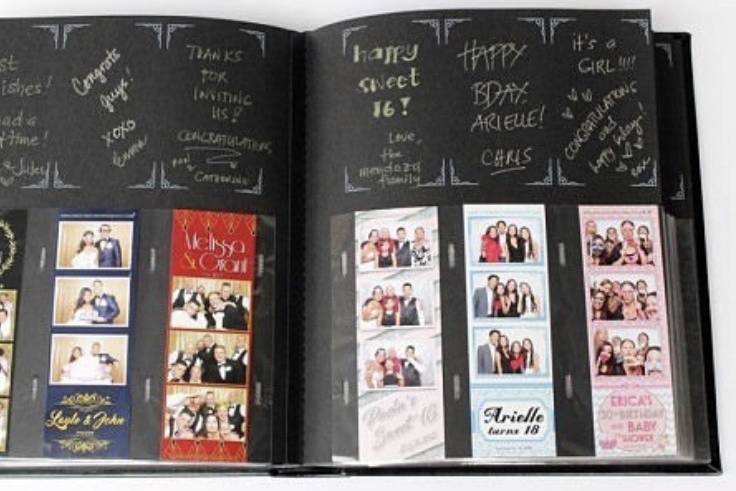 st
ishes!
ad a
time!
Jules
Congrats
guys!
xoxo
THANKS
FOR
INVITING
US!
CONGRATULATIONS,
CATHERINE
happy
sweet
16!
Love,
the
mendoza
family
HAPPY
BDAY
ARIELLE!
CHRIS
it's a
GIRL!!!!
CONGRATULATIONS
and
happy bday!
love
Layle & John
Melissa
& Grant
Paola's
Sweet 16
Arielle
turns 18
ERICA'S
30TH BIRTHDAY
AND BABY
SHOWER